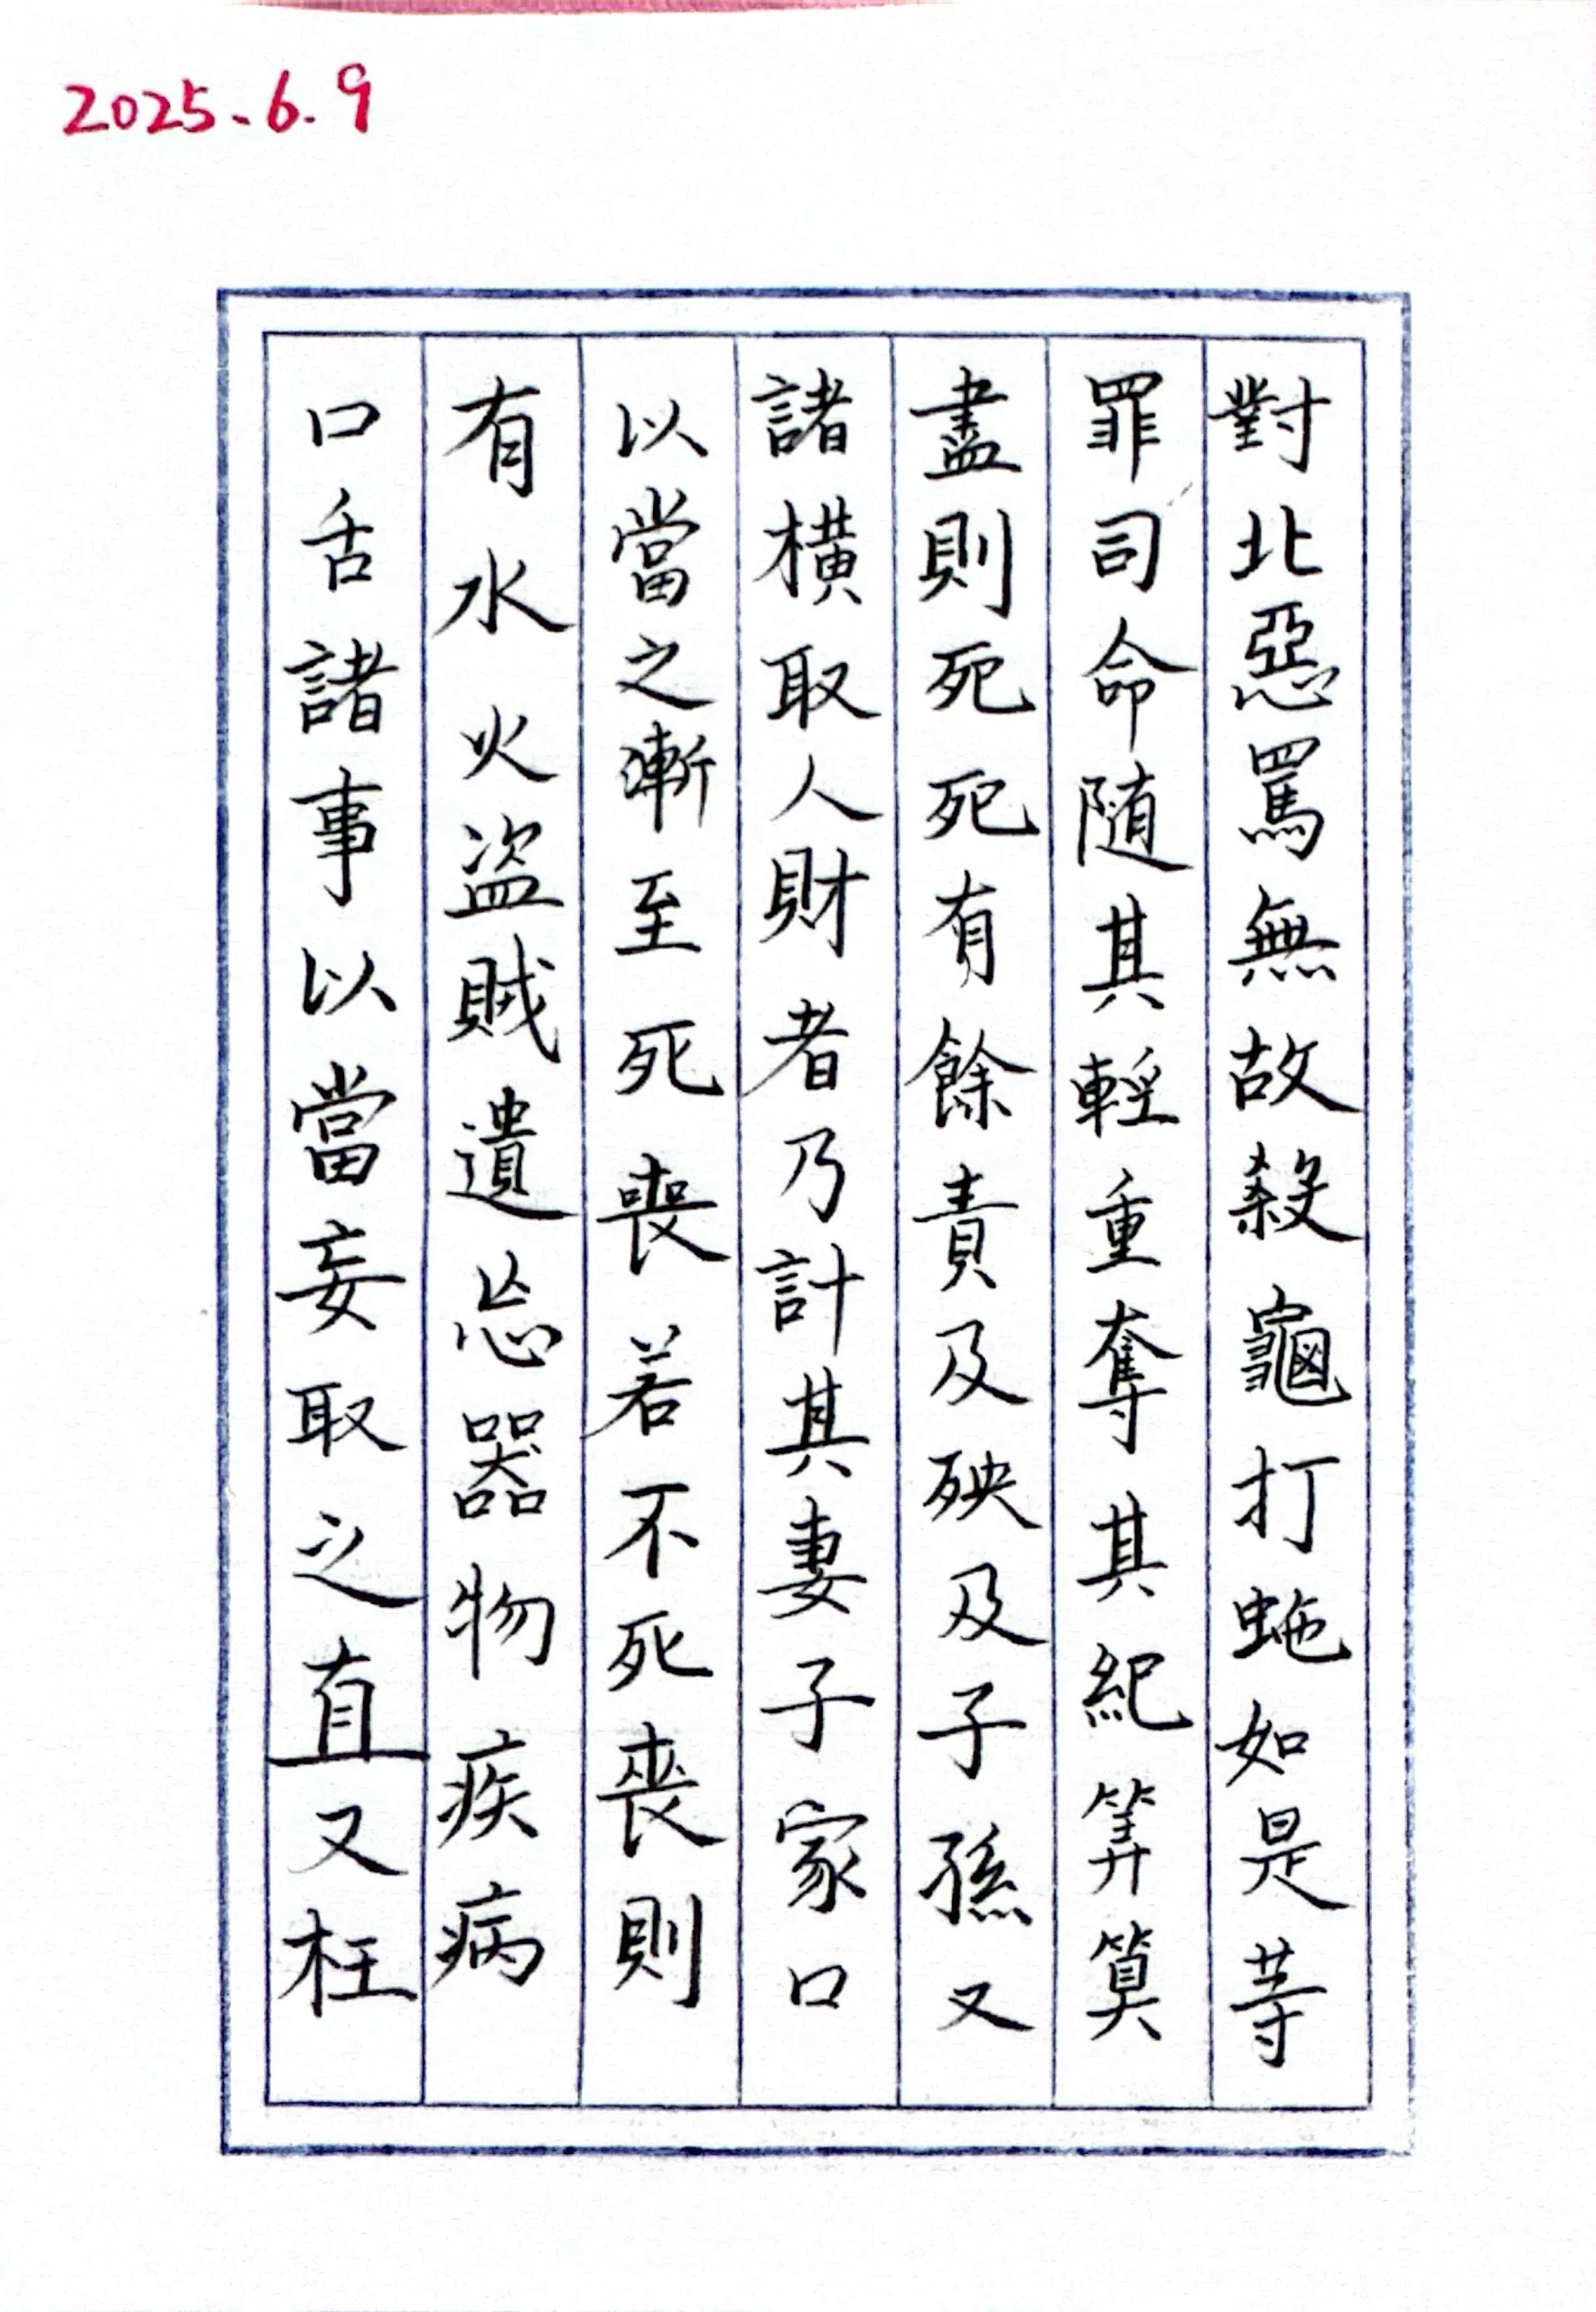 2025.6.9
對北惡罵無故殺龜打虵如是等
罪司命随其輕重奪其紀筭算
盡則死死有餘責及殃及子孫又
諸橫取人財者乃計其妻子家口
以當之漸至死喪若不死喪則
有水火盜賊遺忘器物疾病
口舌諸事以當妄取之直又枉